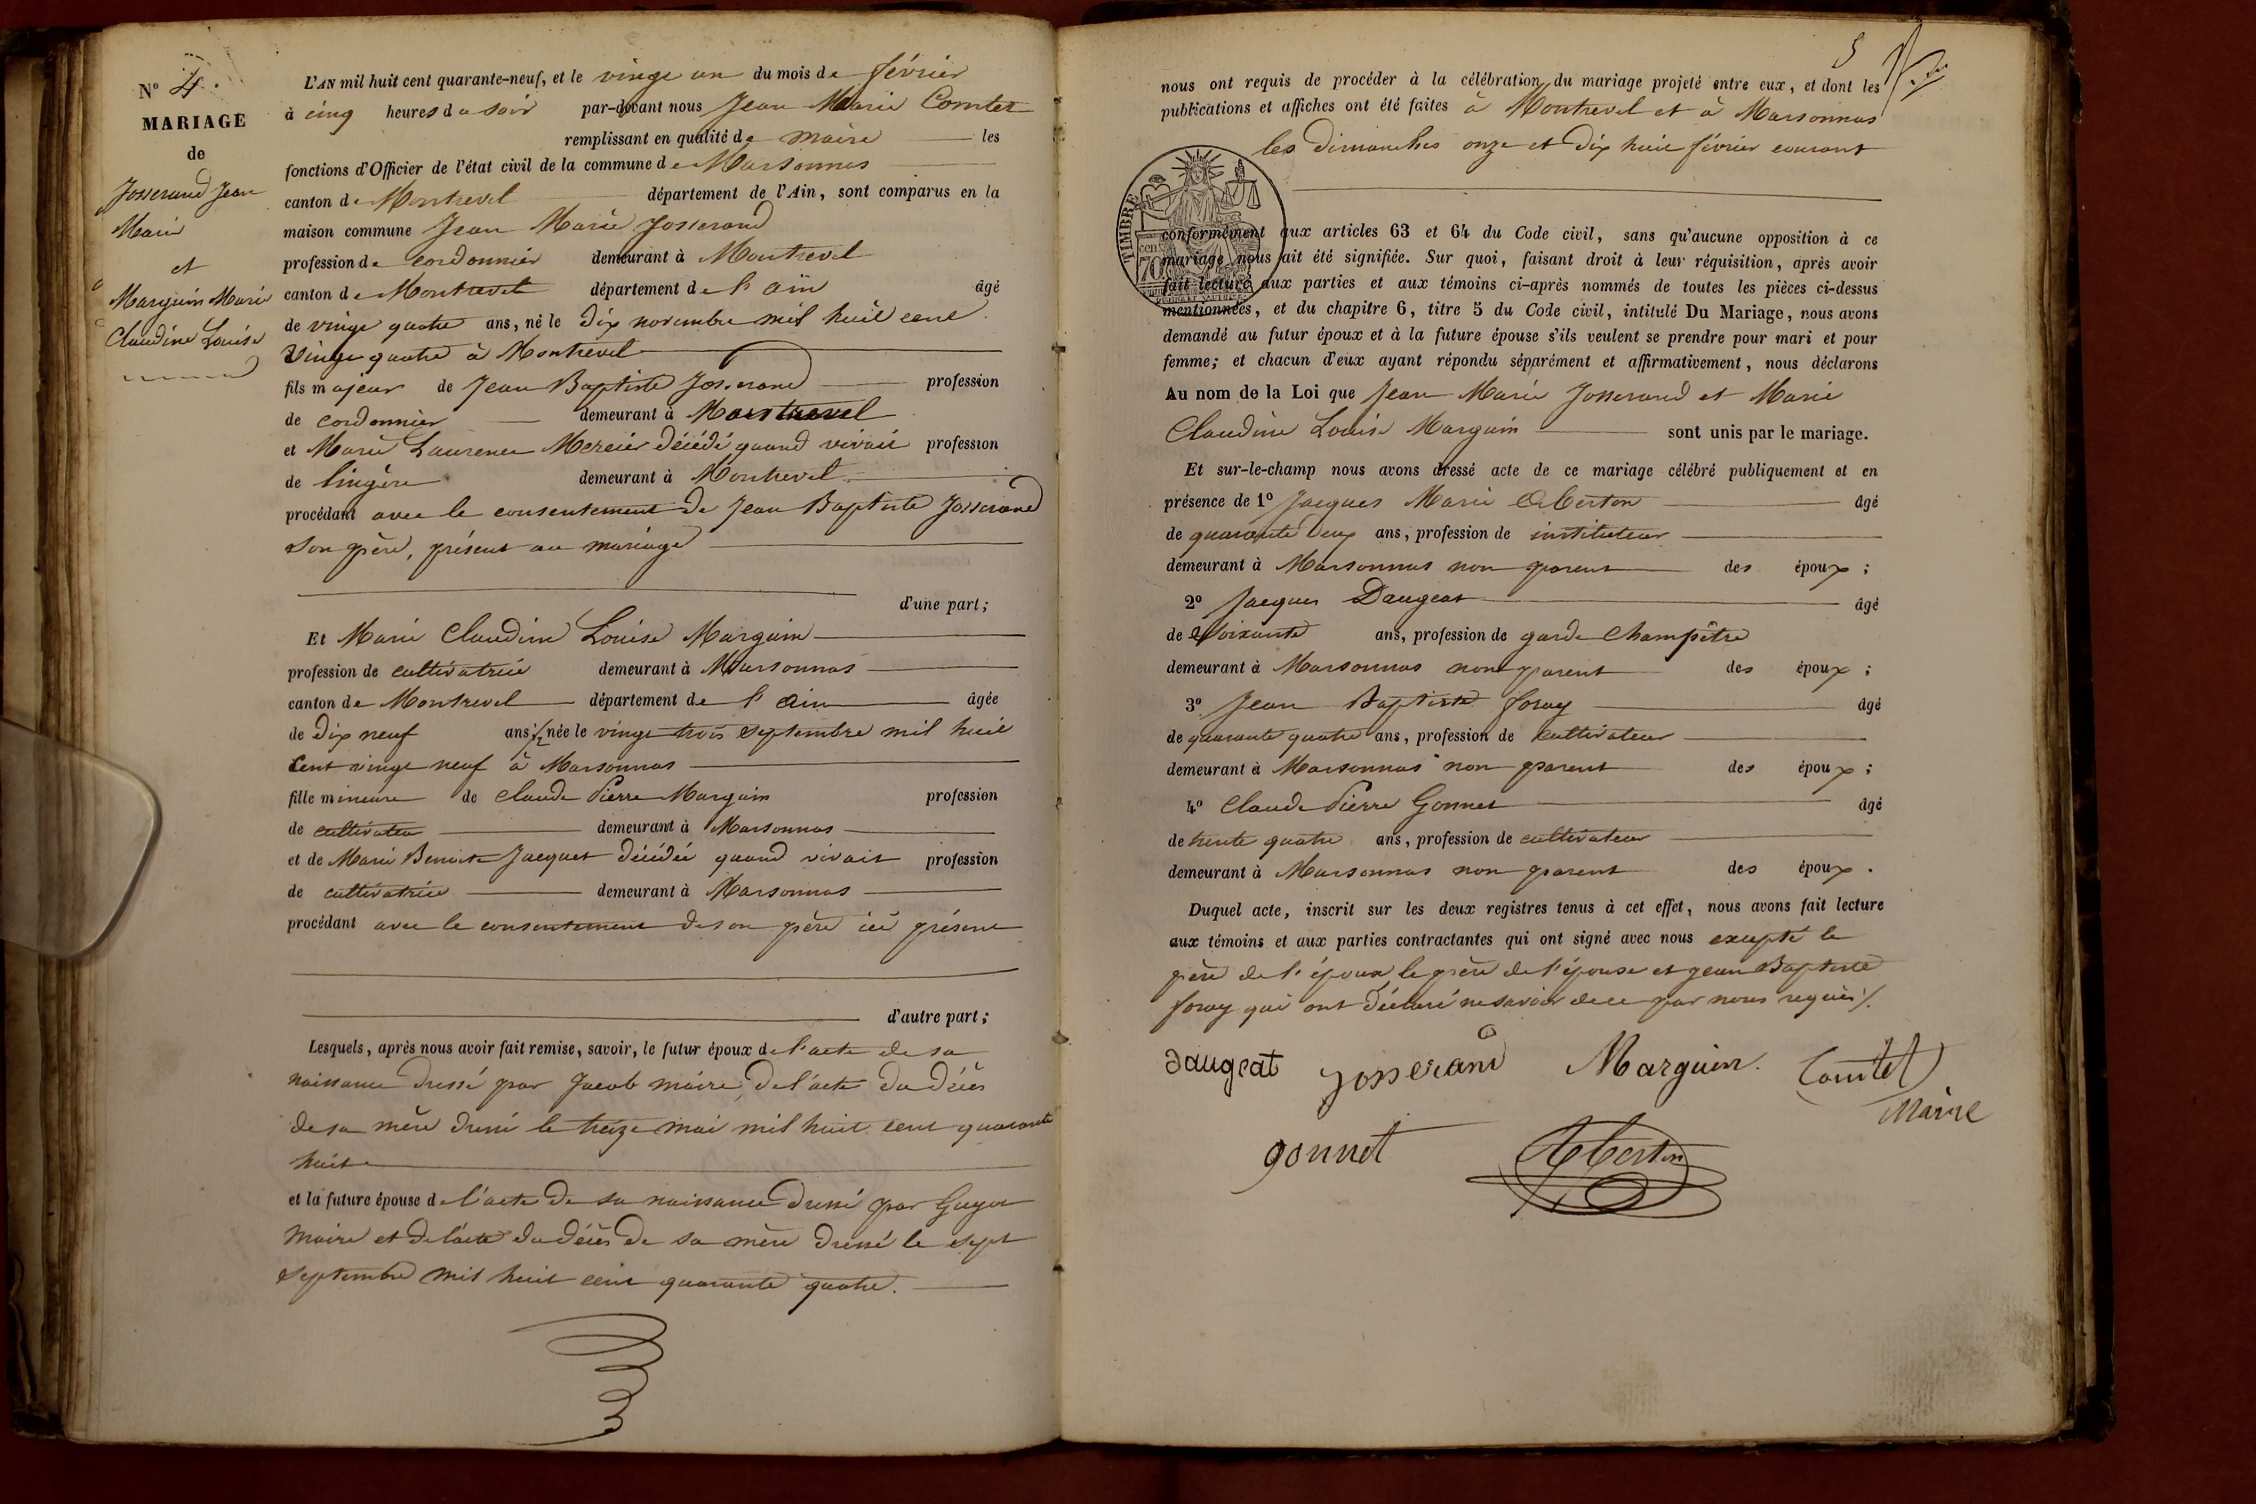 N° 4.
MARIAGE
de
Josserand Jean
Marie
et
Marguin Marie
Claudine Louise
L'AN mil huit cent quarante-neuf, et le vingt un du mois de février
à cinq heures du soir par-devant nous Jean Marie Comtet
remplissant en qualité de maire les
fonctions d'Officier de l'état civil de la commune de Marsonnas
canton de Montrevel département de l'Ain, sont comparus en la
maison commune Jean Marie Josserand
profession de cordonnier demeurant à Montrevel
canton de Montrevel département de l'ain âgé
de vingt quatre ans, né le dix novembre mil huit cent
vingt quatre à Montrevel
fils majeur de Jean Baptiste Josserand profession
de cordonnier demeurant à Montrevel
et Marie Laurence Mercier décédé quand vivait profession
de lingère demeurant à Montrevel
procédant avec le consentement de Jean Baptiste Josserand
son père, présent au mariage
d'une part;
Et Marie Claudine Louise Marguin
profession de cultivatrice demeurant à Marsonnas
canton de Montrevel département de l'Ain âgée
de dix neuf ans 1/2 née le vingt trois septembre mil huit
cent vingt neuf à Marsonnas
fille mineure de Claude Pierre Marguin profession
de cultivateur demeurant à Marsonnas
et de Marie Benoite Jacquet décédée quand vivait profession
de cultivatrice demeurant à Marsonnas
procédant avec le consentement de son père ici présent
d'autre part;
Lesquels, après nous avoir fait remise, savoir, le futur époux de l'acte de sa
naissance dressé par Jacob maire, de l'acte du décès
de sa mère dressé le treize mai mil huit cent quarante
huit
et la future épouse de l'acte de sa naissance dressé par Guyot
maire et de l'acte du décès de sa mère dressé le sept
septembre mil huit cent quarante quatre.
5
nous ont requis de procéder à la célébration du mariage projeté entre eux, et dont les
publications et affiches ont été faites à Montrevel et à Marsonnas
les dimanches onze et dix huit février courant
TIMBRE
70
conformément aux articles 63 et 64 du Code civil, sans qu'aucune opposition à ce
mariage nous ait été signifiée. Sur quoi, faisant droit à leur réquisition, après avoir
fait lecture aux parties et aux témoins ci-après nommés de toutes les pièces ci-dessus
mentionnées, et du chapitre 6, titre 5 du Code civil, intitulé Du Mariage, nous avons
demandé au futur époux et à la future épouse s'ils veulent se prendre pour mari et pour
femme; et chacun d'eux ayant répondu séparément et affirmativement, nous déclarons
Au nom de la Loi que Jean Marie Josserand et Marie
Claudine Louise Marguin sont unis par le mariage.
Et sur-le-champ nous avons dressé acte de ce mariage célébré publiquement et en
présence de 1° Jacques Marie Eberton âgé
de quarante deux ans, profession de instituteur
demeurant à Marsonnas non parent des époux;
2° Jacques Daugeat âgé
de soixante ans, profession de garde champêtre
demeurant à Marsonnas non parent des époux;
3° Jean Baptiste foray âgé
de quarante quatre ans, profession de cultivateur
demeurant à Marsonnas non parent des époux;
4° Claude Pierre Gonnet âgé
de trente quatre ans, profession de cultivateur
demeurant à Marsonnas non parent des époux.
Duquel acte, inscrit sur les deux registres tenus à cet effet, nous avons fait lecture
aux témoins et aux parties contractantes qui ont signé avec nous excepté le
père de l'époux, le père de l'épouse et jean Baptiste
foray qui ont déclaré ne savoir de ce par nous requis /.
daugeat Josserand Marguin. Comtet
Maire
gonnet Eberton